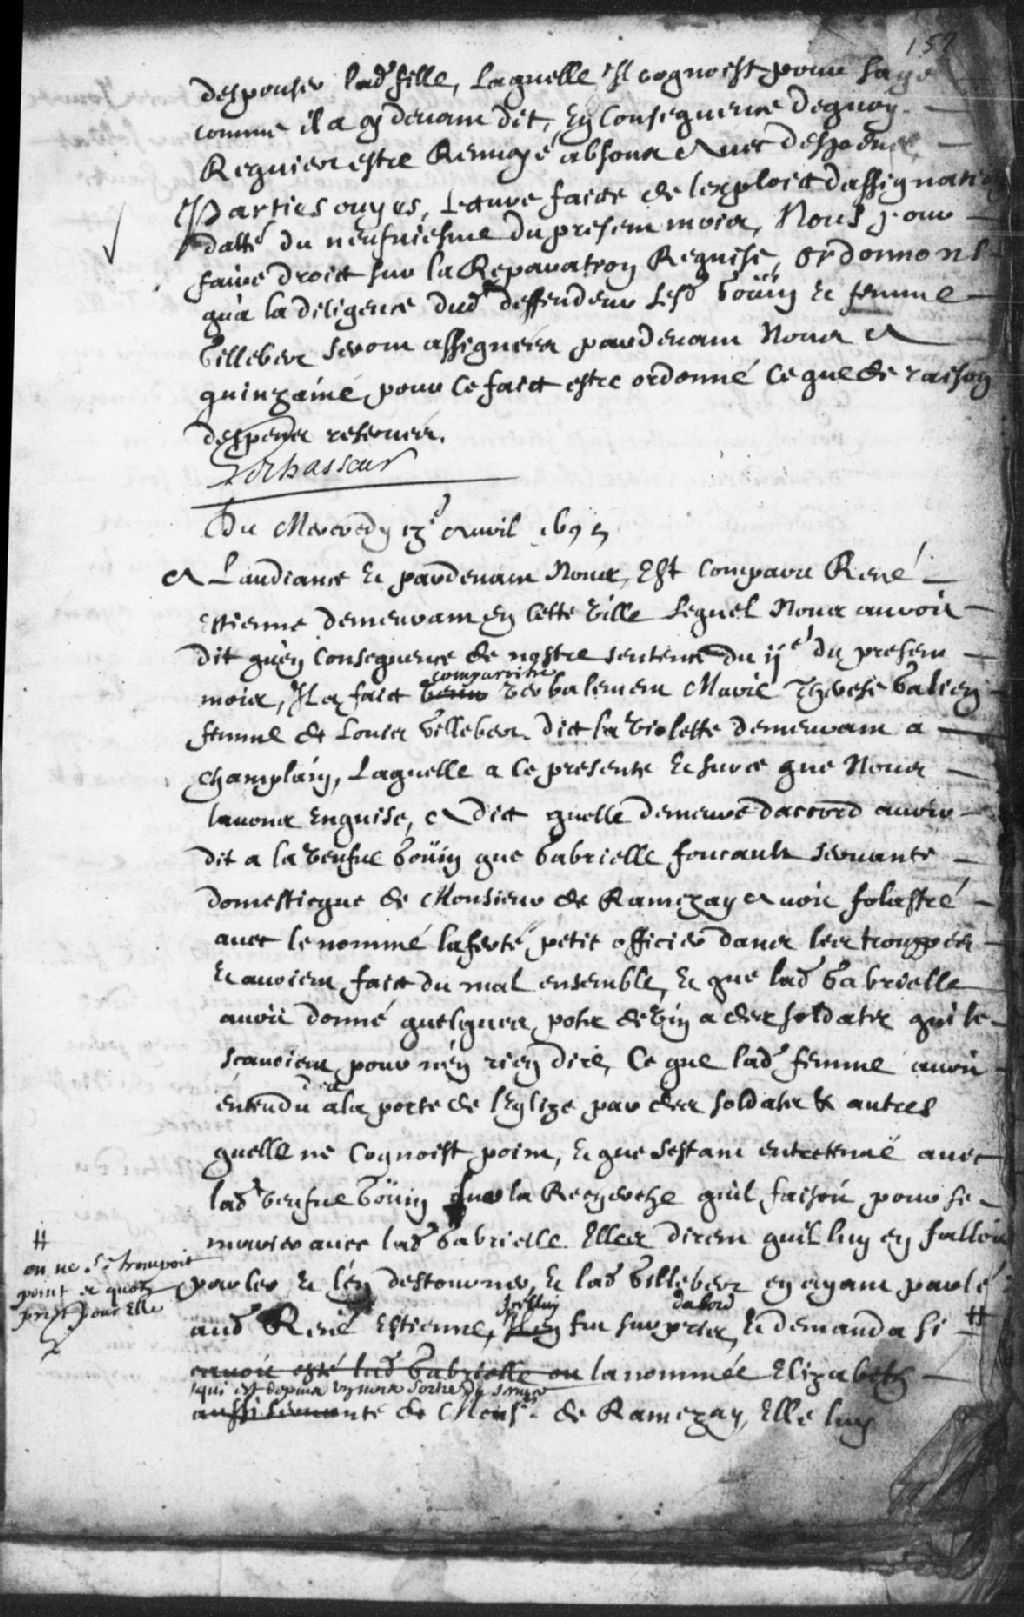 157
desponser lad fille, laquelle Il cognoist pour sage
comme il a cy devant dit, En Consequence dequoy
Requiert estre Renvoyé absous Avec despens,
Parties ouyes, Lecture faicte de lexploict dassignation
datté du neufviesme du present mois, Nous pour
faire droict sur la Reparation Requise, Ordonnons
qu'a la diligence dud deffendeur Lesd Goüin et femme
Villebert seront assignées pardevant Nous A
quinzaine, pour ce faict estre ordonné ce que de raison
despens reservés.
Lechasseur
Du Mercredy avril 1695
A Laudiance et pardevant Nous, Est comparu René
Estienne demeurant en cette ville Lequel Nous auroit
dit qu'en consequence de nostre sentence du ije du present
mois, Il a faict venir comparoitre verbalement Marie Therese Valien
femme de Louis Villebert dict la violette demeurant a
Champlain, Laquelle a ce presente Et sur ce que Nous
lavons Enquise, A dict quelle demeure daccord avoir
dit a la veufve Goüin que Gabrielle foucault servante
domesticque de Monsieur de Ramezay Avoit folastré
avec le nommé laferté petit officier dans les trouppes
Et avoient faict du mal ensemble, Et que lad Gabrielle
avoit donné quelques pots de vin a des soldats qui le
scavoient pour n'en rien dire, Ce que lad femme avoit
entendu dire a la porte de lEglize par des soldats & autres
quelle ne cognoist point, Et que sestant entretenuë avec
lad veufve Goüin sur la Recherche quil faisoit pour se
marier avec lad Gabrielle Elles dirent quil luy en falloit
parler Et l'en destourner, Et lad Villebert en ayant parlé
aud René Estienne, Icelluy fut surpris dabord, Et demanda si #
# on ne se trompoit
point et quon
prist pour Elle
cavoit esté lad Gabrielle ou la nommée Elizabeth
qui est depuis sortie du service
aussi servante de Monsr. de Ramezay, Elle luy